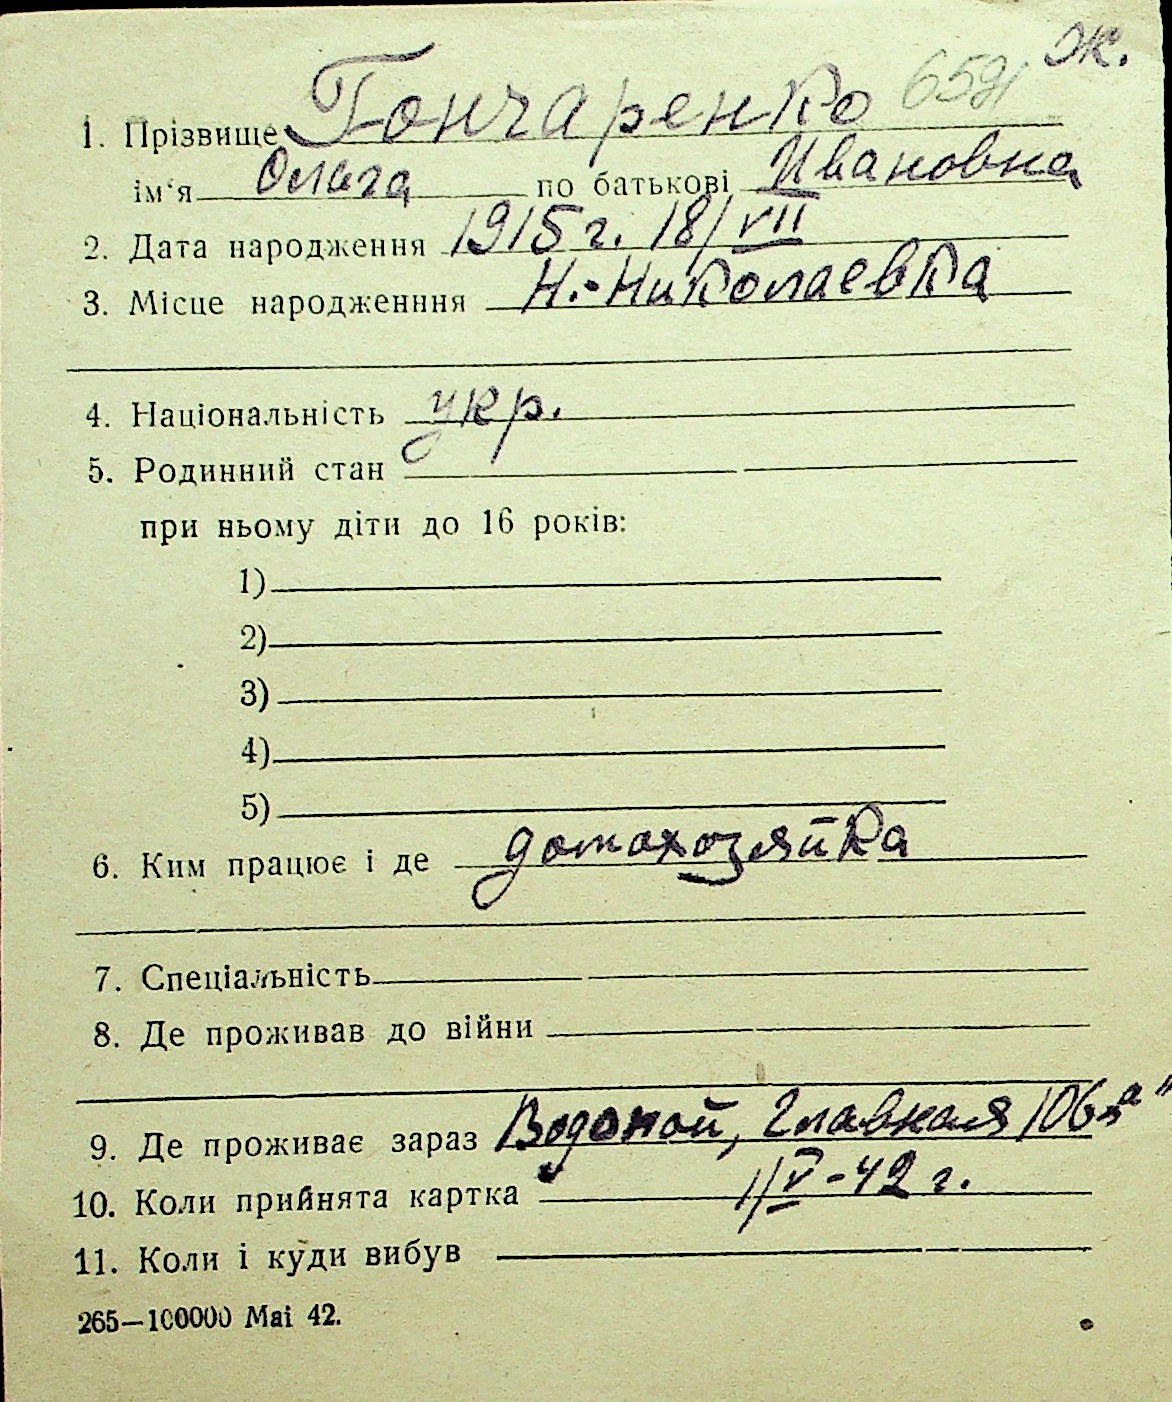 ж.
1. Прізвище Гончаренко
ім'я Ольга по батькові Ивановна
2. Дата народження 1915 г. 18/VII
3. Місце народженння Н.-Николаевка
4. Національність укр.
5. Родинний стан
при ньому діти до 16 років:
1)
2)
3)
4)
5)
6. Ким працює і де домохозяйка
7. Спеціальність
8. Де проживав до війни
9. Де проживає зараз Водопой, Главная 106 „а"
10. Коли прийнята картка 1/V-42 г.
11. Коли і куди вибув
265—100000 Mai 42.